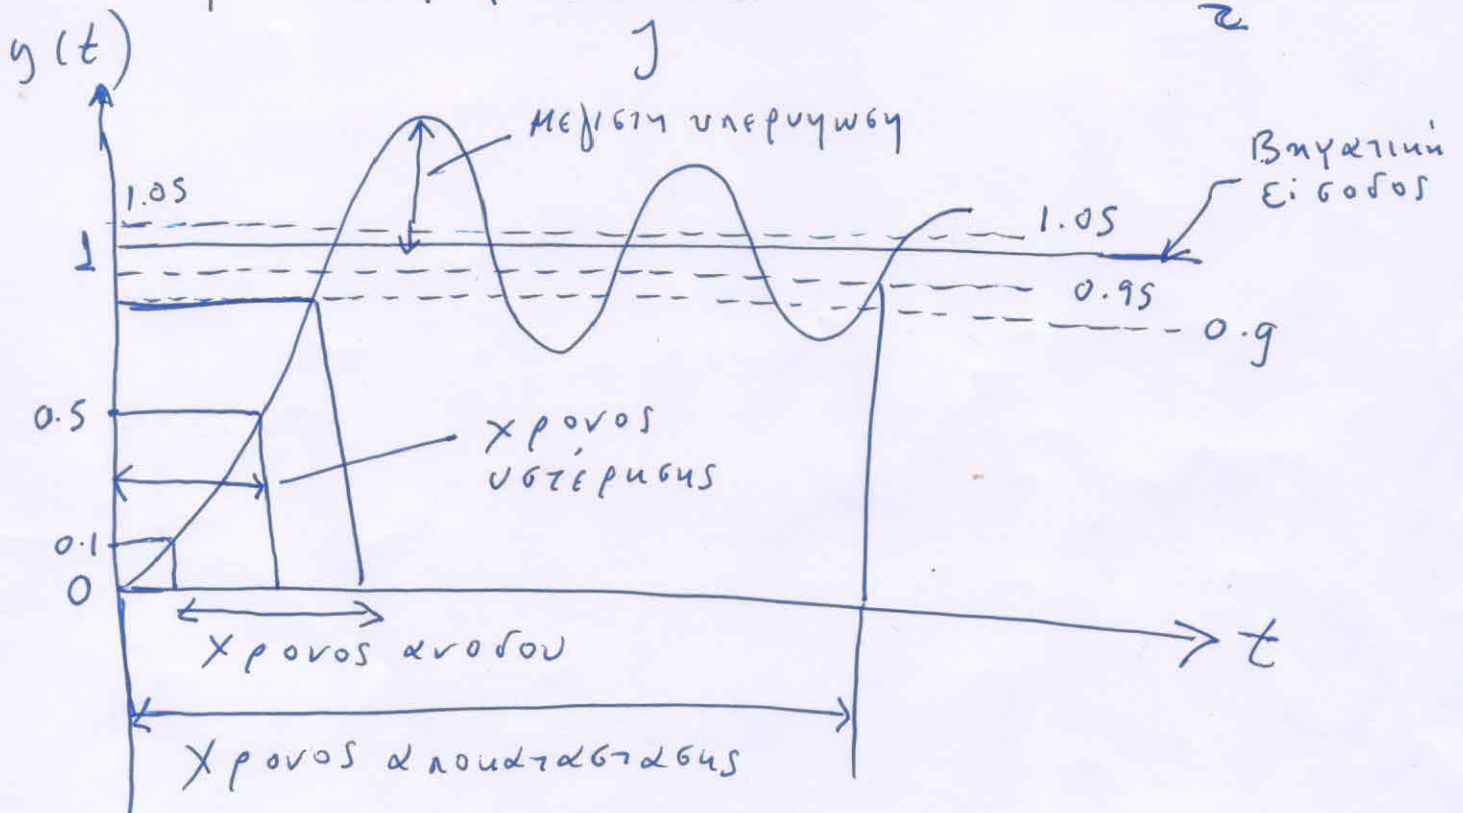 y(t)
Μεγιστη υπερυψωση
Βηματική
είσοδος
1.05
1.05
1
0.95
0.9
0.5
χρονος
υστέρησης
0.1
0
t
Χρονος ανοδου
Χρονος αποκαταστασης